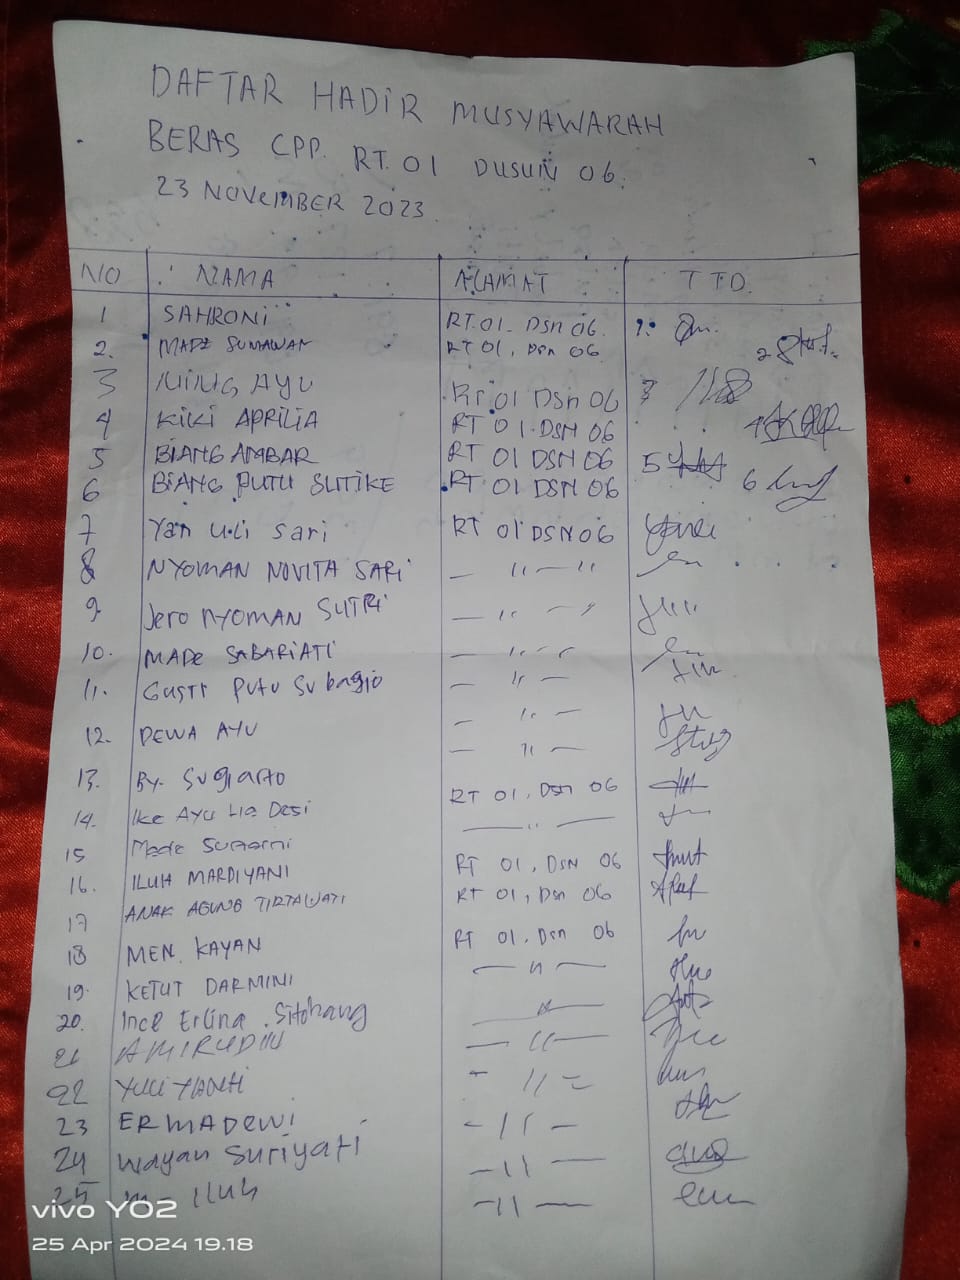 DAFTAR HADIR MUSYAWARAH
BERAS CPP. RT. 01 DUSUN 06.
23 NOVEMBER 2023.
NO NAMA ALAMAT TTD.
1 SAHRONI RT. 01. DSN 06. 1.
2. MADE SUMAWAN RT 01, DSN 06 2
3 NING AYU RT 01 DSN 06 3
4 KIKI APRILIA RT 01. DSN 06 4
5 BIANG AMBAR RT 01 DSN 06 5
6 BIANG PUTU SUTIKE RT 01 DSN 06 6
7 Yan Uli Sari RT 01 DSN 06
8 NYOMAN NOVITA SARI — " — "
9. Jero NYOMAN SUTRI — " — "
10. MADE SABARIATI — " —
11. GUSTI PUTU SUbagio — " —
12. DEWA AYU — " —
— " —
13. By. Sugiarto RT 01, DSN 06
14. Ike Ayu Lia Desi — " —
15 Made Sumarni RT 01, DSN 06
16. ILUH MARDIYANI RT 01, DSN 06
17 ANAK AGUNG TIRTAWATI RT 01, DSN 06
18 MEN. KAYAN — " —
19. KETUT DARMINI
20. Ince Erlina. Sitohang — " —
21 AMIRUDIN — " —
22 YULI YANTI — " —
23 ERMADEWI — " —
24 Wayan Suriyati — " —
25 Iluh — " —
vivo Y02
25 Apr 2024 19.18